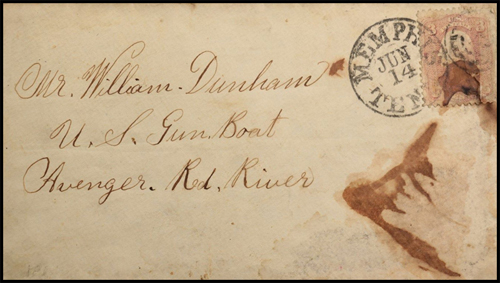 MEMPHIS
JUN
14
TEN
Mr. William Dunham
U. S. Gun Boat
Avenger. Red. River